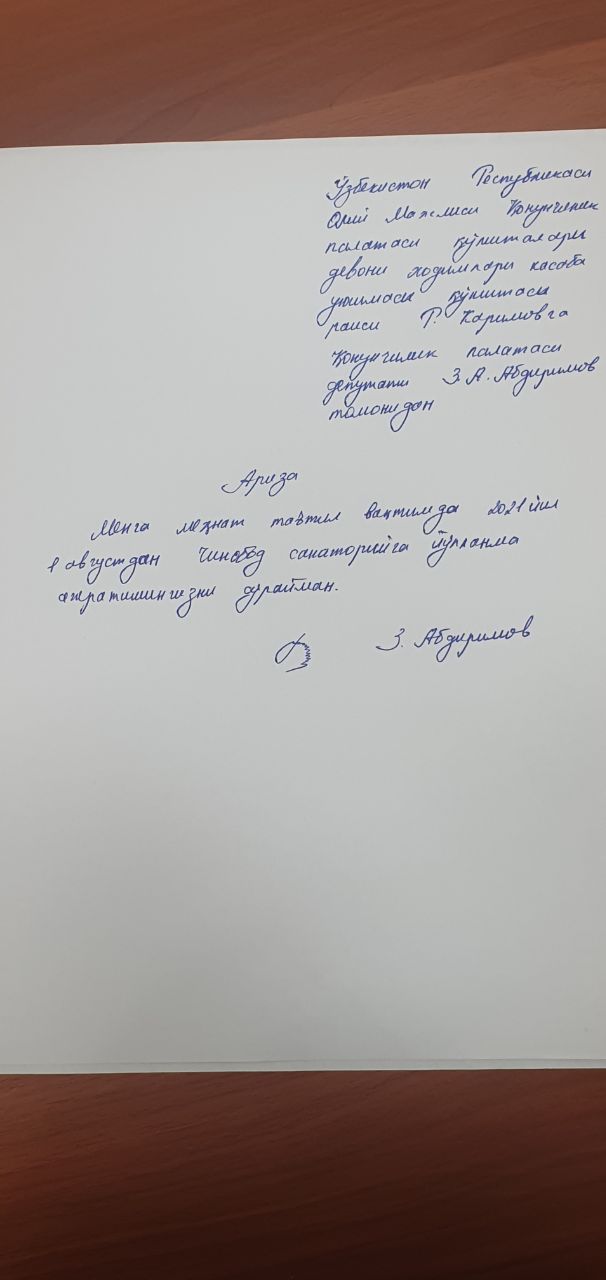 Ўзбекистон Республикаси
Олий Мажлиси Қонунчилик
палатаси қўмиталари
девони ходимлари касаба
уюшмаси қўмитаси
раиси Р. Каримовга
Қонунчилик палатаси
депутати З.А. Абдиримов
томонидан
Ариза
Менга меҳнат таътил вақтимда 2021 йил
1 августдан Чинобод санаторийга йўлланма
ажратишингизни сўрайман.
З. Абдиримов